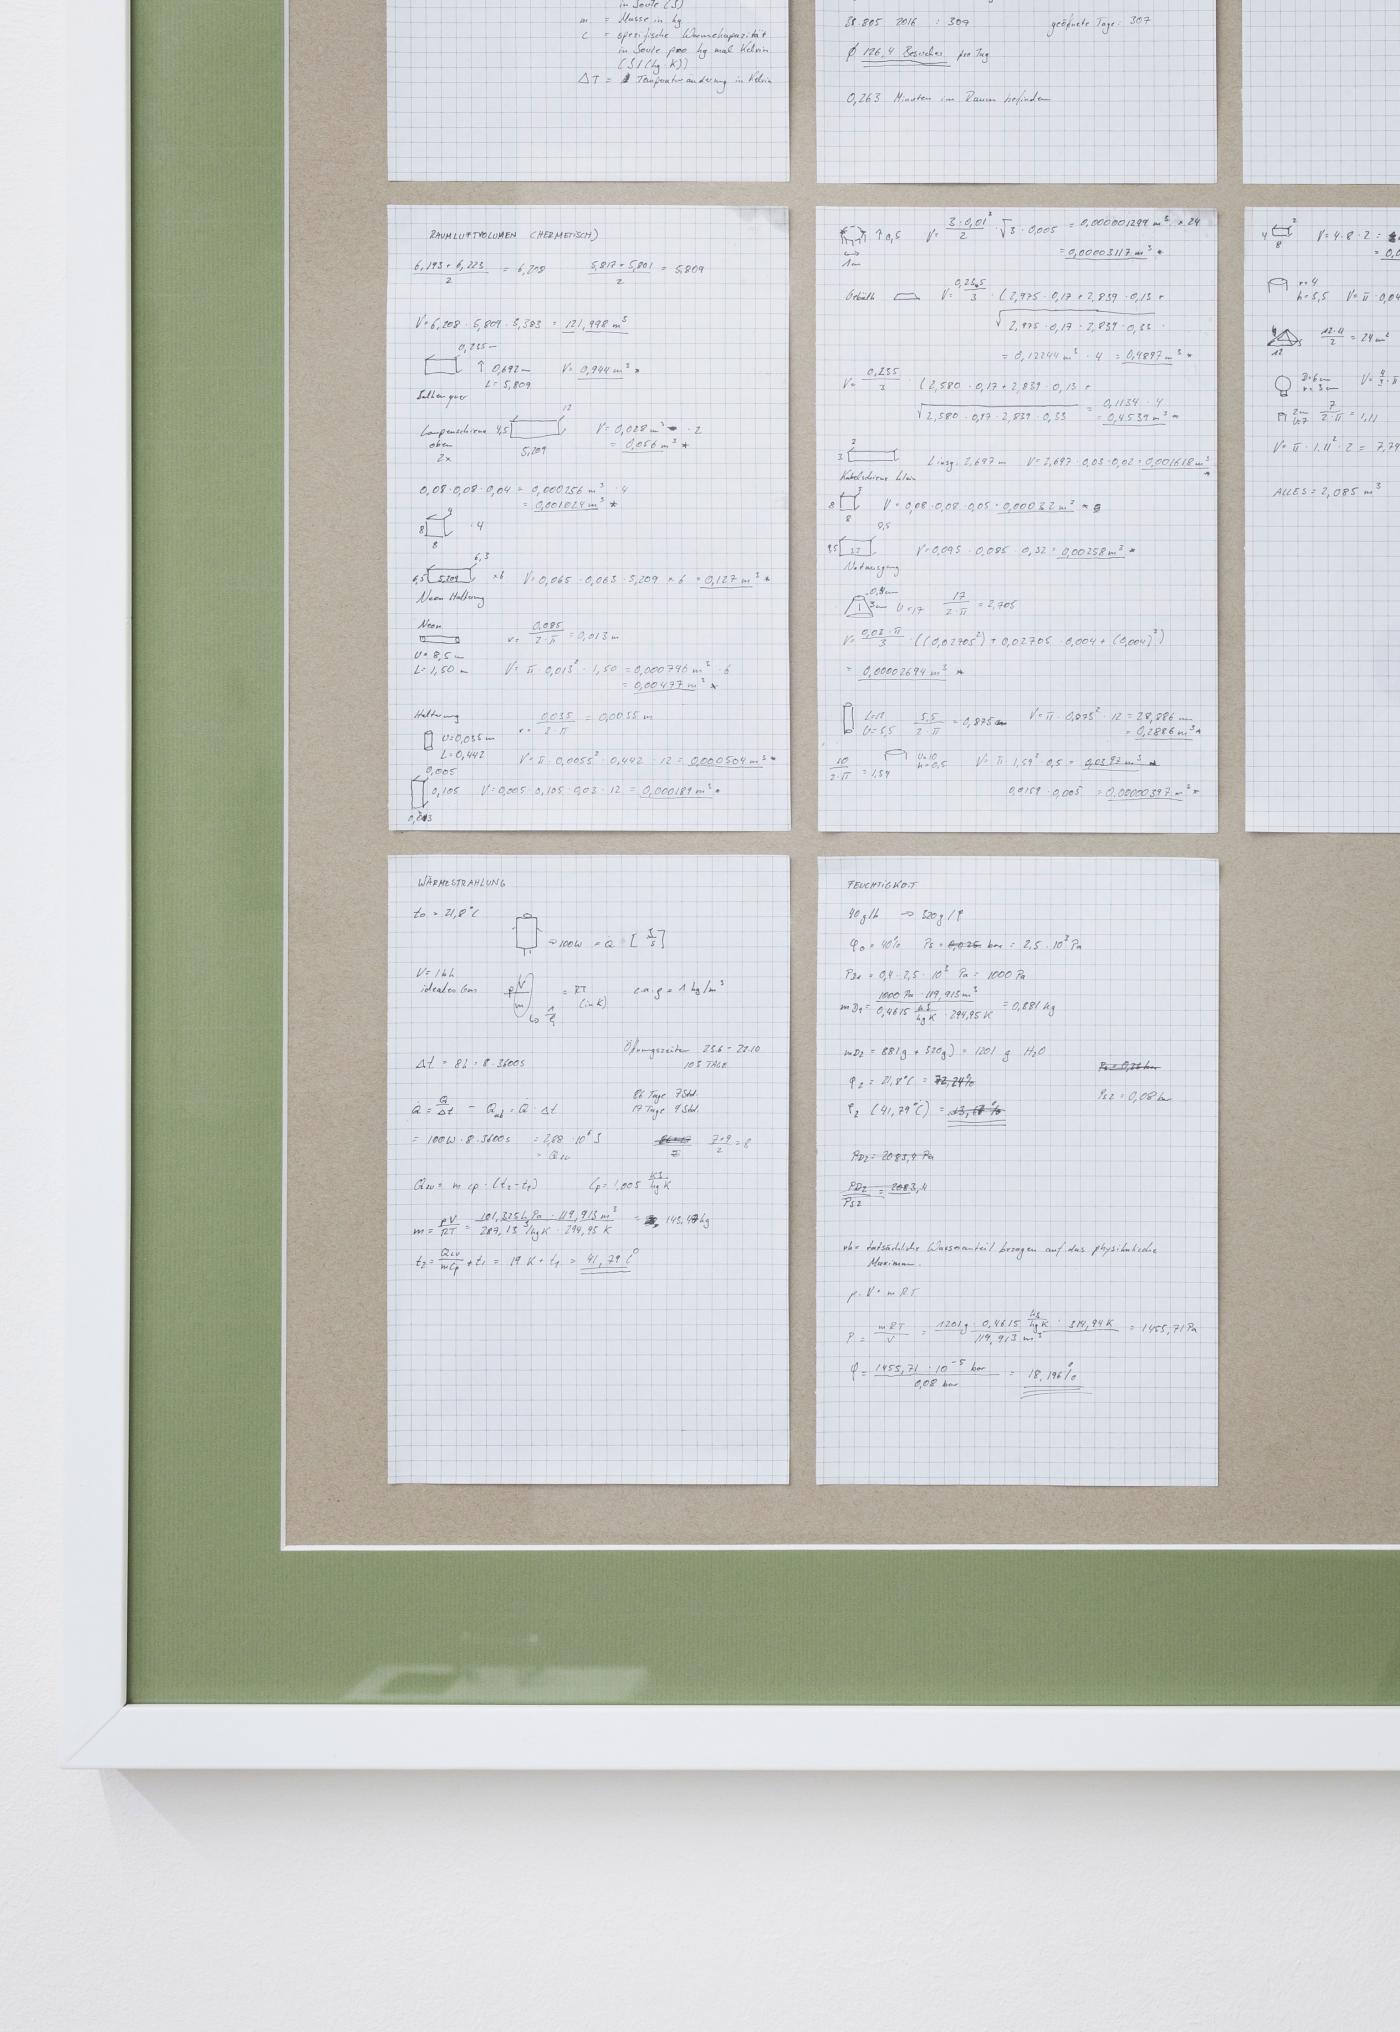 in Joule (J)
m = Masse in kg
c = spezifische Wärmekapazität
in Joule pro kg mal Kelvin
(J/(kg·K))
ΔT = Temperaturänderung in Kelvin
38.805 2016 : 307 geöffnete Tage: 307
Ø 126,4 Besucher pro Tag
0,263 Minuten im Raum befinden
RAUMLUFTVOLUMEN (HERMETISCH)
6,193 + 6,223 / 2 = 6,208 5,817 + 5,801 / 2 = 5,809
V = 6,208 · 5,809 · 3,383 = 121,998 m³
0,235 m
↑ 0,692 m V = 0,944 m³ *
L = 5,809
Balken quer
12
Lampenschiene 4,5 V = 0,028 m³ · 2
oben = 0,056 m³ *
2x 5,209
0,08 · 0,08 · 0,04 = 0,000256 m³ · 4
= 0,001024 m³ *
4
8 · 4
8
6,3
6,5 5,209 x6 V = 0,065 · 0,063 · 5,209 x 6 = 0,127 m³ *
Neon Halterung
Neon
r = 0,085 / 2·π = 0,013 m
U = 8,5 cm
L = 1,50 m V = π · 0,013² · 1,50 = 0,000796 m³ · 6
= 0,00477 m³ *
Halterung
r = 0,035 / 2·π = 0,0055 m
U = 0,035 m
L = 0,442 V = π · 0,0055² · 0,442 · 12 = 0,000504 m³ *
0,005
0,105 V = 0,005 · 0,105 · 0,03 · 12 = 0,000189 m³ *
↑ 0,5 V = 3 · 0,01² / 2 · √3 · 0,005 = 0,000001299 m³ · x 24
= 0,00003117 m³ *
1cm
Gebälk V = 0,235 / 3 · (2,975 · 0,17 + 2,839 · 0,13 +
√ 2,975 · 0,17 · 2,839 · 0,33 ·
= 0,12244 m³ · 4 = 0,4897 m³ *
V = 0,235 / 3 · (2,580 · 0,17 + 2,839 · 0,13 +
√ 2,580 · 0,17 · 2,839 · 0,33 = 0,1134 · 4
= 0,4539 m³ *
2
3 L insg. 2,697 m V = 2,697 · 0,03 · 0,02 = 0,001618 m³ *
Kabelschiene klein
8 V = 0,08 · 0,08 · 0,05 = 0,00032 m³ *
8
9,5
32 V = 0,095 · 0,085 · 0,32 = 0,00258 m³ *
Notausgang
3cm U = 17 17 / 2·π = 2,705
V = 0,03 · π / 3 · ((0,02705²) + 0,02705 · 0,004 + (0,004)²)
= 0,00002694 m³ *
L = 12
U = 5,5 5,5 / 2·π = 0,875 V = π · 0,875² · 12 = 28,886
= 0,2886 m³ *
10 / 2·π = 1,59 U = 10 h = 0,5 V = π · 1,59² · 0,5 = 0,0397 m³
0,0159 · 0,005 = 0,00000397 m³ *
2
4 V = 4 · 8 · 2 =
8
r = 4
h = 5,5 V = π · 0,04
12 · 4 / 2 = 24 m²
12
D = 6 cm
r = 3 cm V = 4 / 3 · π
2 cm
U = 7 7 / 2·π = 1,11
V = π · 1,11² · 2 = 7,74
ALLES = 2,085 m³
WÄRMESTRAHLUNG
t₀ = 21,8°C
⇒ 100W = Q̇ [J/s]
V = 1hh
ideales Gas pV / m = RT (in K) c.a. ϱ = 1 kg/m³
Öffnungszeiten 23.6 – 22.10
103 TAGE
Δt = 8h = 8 · 3600s
86 Tage 7 Std.
17 Tage 9 Std.
Q̇ = Q / Δt – Q ab = Q̇ · Δt
= 100W · 8 · 3600s = 2,88 · 10⁶ J 7+9 / 2 = 8
= Q zu
Q zu = m cp · (t₂ – t₁) Cp = 1,005 KJ / kg K
m = pV / RT = 101,325 hPa · 119,913 m³ / 287,13 J/kgK · 294,95 K = 143,47 kg
t₂ = Q zu / m cp + t₁ = 19 K + t₁ = 41,79 C°
FEUCHTIGKEIT
40 g/h ⇒ 320 g/P
φ₀ = 40% Ps = 0,025 bar = 2,5 · 10³ Pa
PD₁ = 0,4 · 2,5 · 10³ Pa = 1000 Pa
mD₁ = 1000 Pa · 119,913 m³ / 0,4615 KJ / kg K · 294,95 K = 0,881 kg
mD₂ = 881g + 320g) = 1201 g H₂O
Ps = 0,26 bar
φ₂ = 21,8°C = 72,24%
Ps2 = 0,08 bar
φ₂ (41,79°C) =
PD₂ = 2083,4 Pa
PD₂ / Ps2 = 2083,4
rh = tatsächliche Wasseranteil bezogen auf das physikalische
Maximum.
p · V = m RT
P = mRT / V = 1201g · 0,4615 KJ / kg K · 314,94 K / 119,913 m³ = 1455,71 Pa
φ = 1455,71 · 10⁻⁵ bar / 0,08 bar = 18,196%